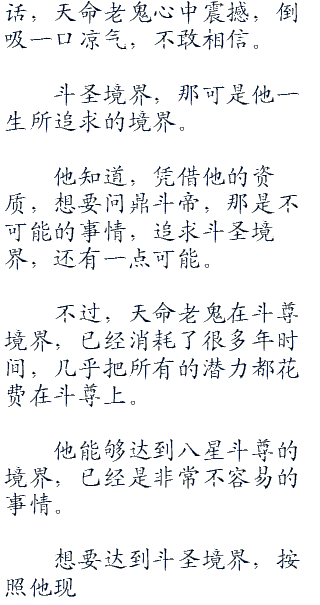 话，天命老鬼心中震撼，倒
吸一口凉气，不敢相信。
斗圣境界，那可是他一
生所追求的境界。
他知道，凭借他的资
质，想要问鼎斗帝，那是不
可能的事情，追求斗圣境
界，还有一点可能。
不过，天命老鬼在斗尊
境界，已经消耗了很多年时
间，几乎把所有的潜力都花
费在斗尊上。
他能够达到八星斗尊的
境界，已经是非常不容易的
事情。
想要达到斗圣境界，按
照他现